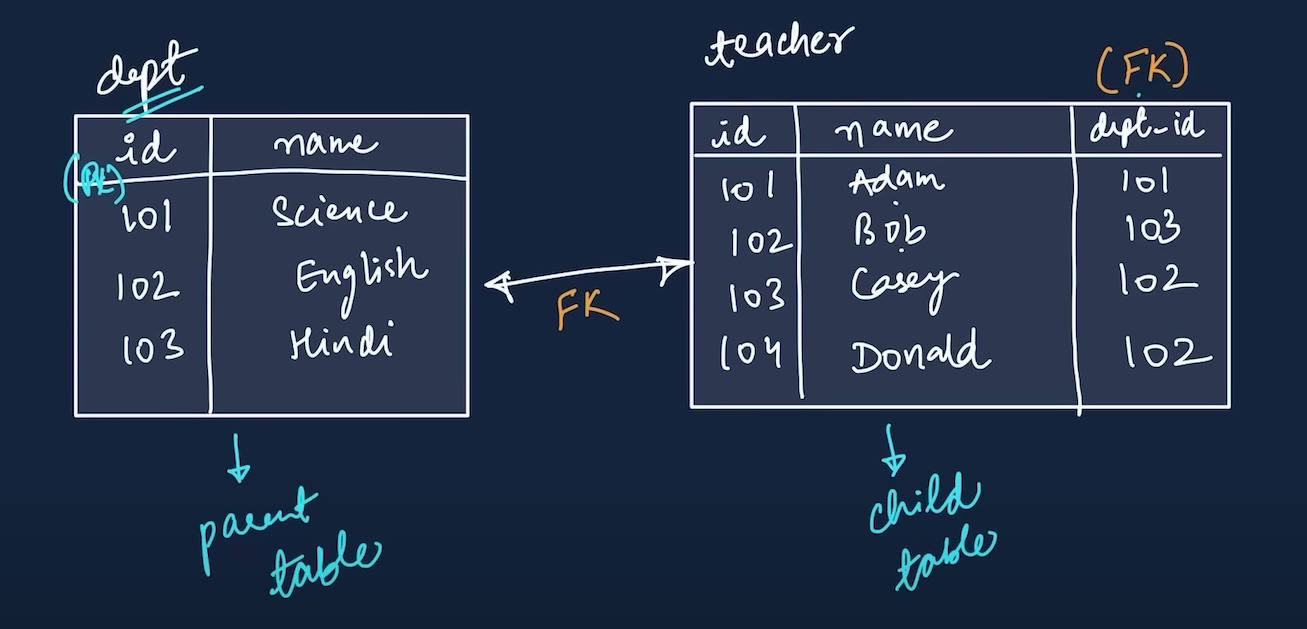 dept
id name
(PK)
101 Science
102 English
103 Hindi
parent
table
FK
teacher
(FK)
id name dept-id
101 Adam 101
102 Bob 103
103 Casey 102
104 Donald 102
child
table